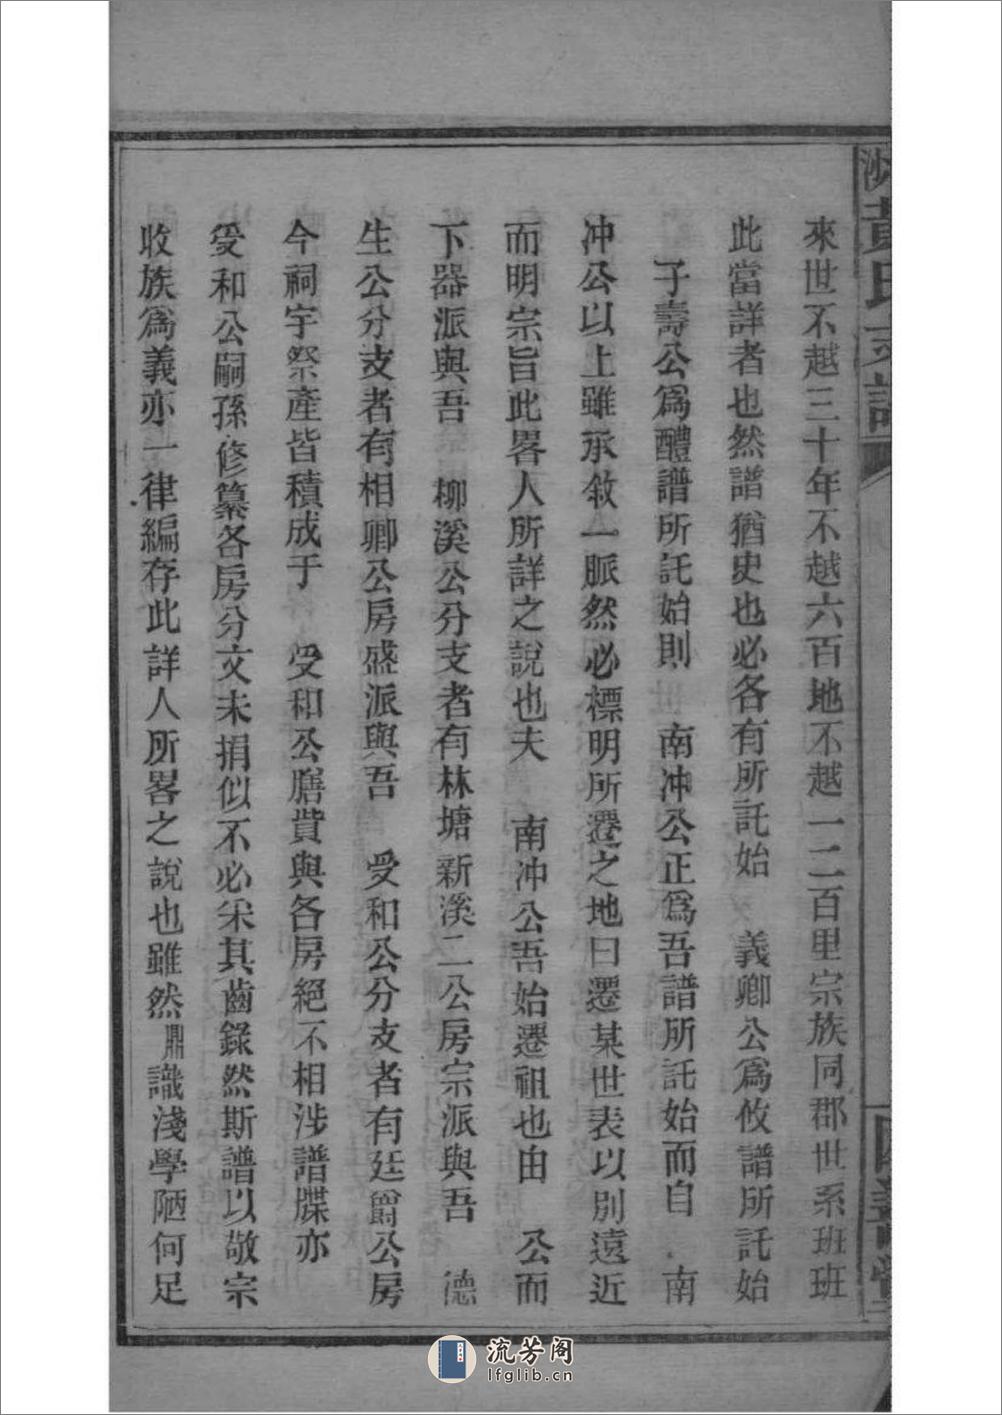 黃氏支譜
來世不越三十年不越六百地不越一二百里宗族同郡世系班班
此當詳者也然譜猶史也必各有所託始 義卿公爲攸譜所託始
子壽公爲醴譜所託始則 南冲公正爲吾譜所託始而自 南
冲公以上雖承敘一脈然必標明所遷之地曰遷某世表以別遠近
而明宗旨此畧人所詳之說也夫 南冲公吾始遷祖也由 公而
下器派與吾 柳溪公分支者有林塘新溪二公房宗派與吾 德
生公分支者有相卿公房盛派與吾 受和公分支者有廷爵公房
今祠宇祭產皆積成于 受和公膳貲與各房絕不相涉譜牒亦
受和公嗣孫修纂各房分文未捐似不必采其齒錄然斯譜以敬宗
收族爲義亦一律編存此詳人所畧之說也雖然鼎識淺學陋何足
流芳阁
lfglib.cn